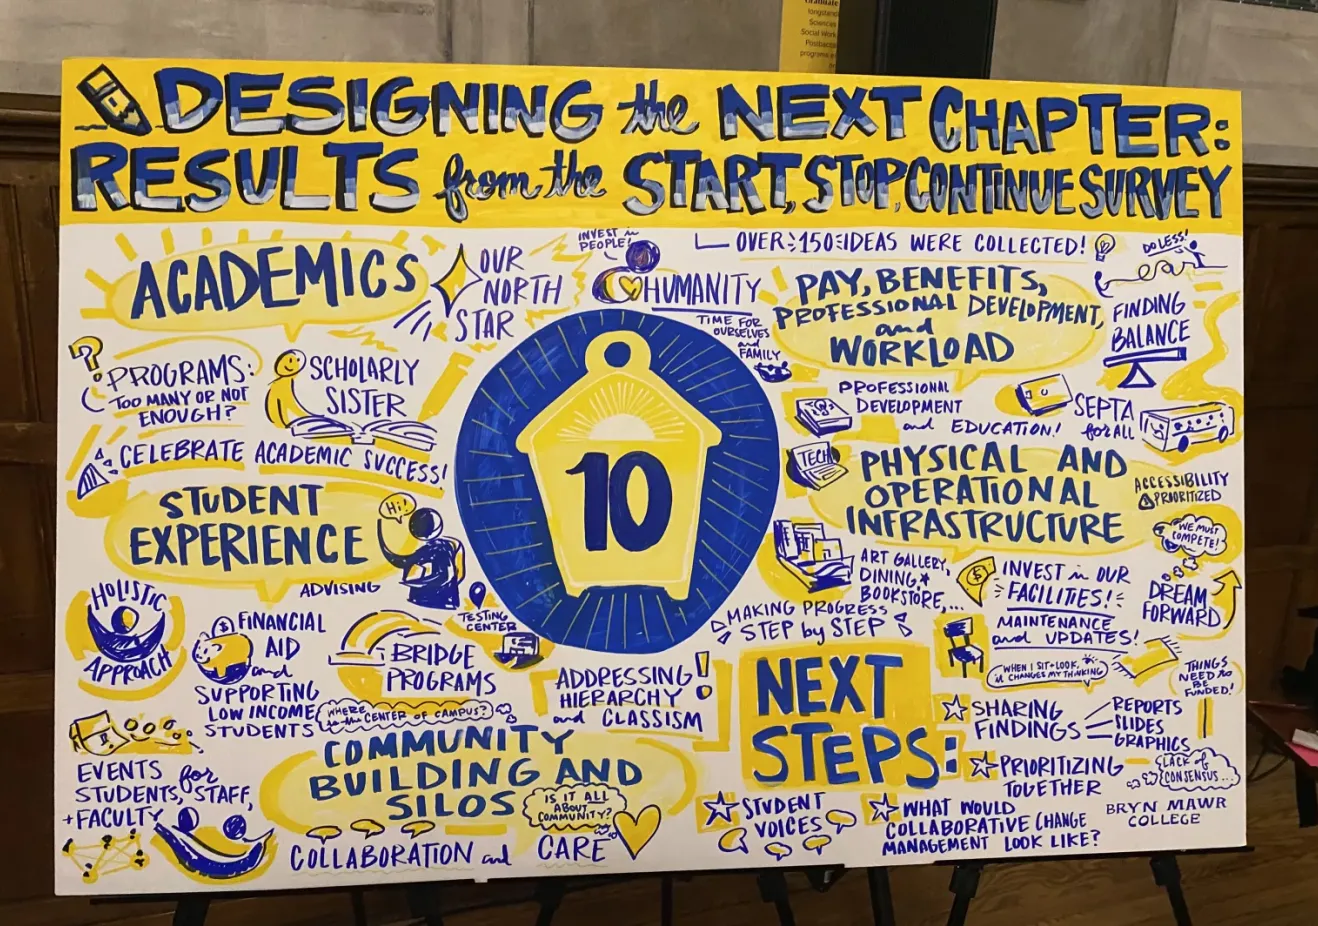 Graduate
longstand
Sciences
Social Work
Postbacca
programs
DESIGNING the NEXT CHAPTER:
RESULTS from the START, STOP, CONTINUE SURVEY
ACADEMICS
OUR
NORTH
STAR
INVEST in
PEOPLE!
HUMANITY
TIME FOR
OURSELVES
and
FAMILY
OVER 150 IDEAS WERE COLLECTED!
DO LESS!
PAY, BENEFITS,
PROFESSIONAL DEVELOPMENT,
and
WORKLOAD
FINDING
BALANCE
?
PROGRAMS:
TOO MANY OR NOT
ENOUGH?
SCHOLARLY
SISTER
CELEBRATE ACADEMIC SUCCESS!
PROFESSIONAL
DEVELOPMENT
and EDUCATION!
SEPTA
for ALL
10
STUDENT
EXPERIENCE
Hi!
ADVISING
TECH
PHYSICAL AND
OPERATIONAL
INFRASTRUCTURE
ACCESSIBILITY
PRIORITIZED
WE MUST
COMPETE!
DREAM
FORWARD
HOLISTIC
APPROACH
$
FINANCIAL
AID
and
SUPPORTING
LOW INCOME
STUDENTS
BRIDGE
PROGRAMS
TESTING
CENTER
ART GALLERY,
DINING
BOOKSTORE,...
MAKING PROGRESS
STEP by STEP
$
INVEST in OUR
FACILITIES!
MAINTENANCE
and UPDATES!
WHEN I SIT + LOOK,
it CHANGES MY THINKING
THINGS
NEED to
BE
FUNDED!
WHERE
is the CENTER OF CAMPUS?
ADDRESSING
HIERARCHY
and CLASSISM
!
EVENTS for
STUDENTS, STAFF,
+ FACULTY
COMMUNITY
BUILDING AND
SILOS
IS IT ALL
ABOUT
COMMUNITY?
COLLABORATION and CARE
NEXT
STEPS:
SHARING
FINDINGS
REPORTS
SLIDES
GRAPHICS
PRIORITIZING
TOGETHER
LACK OF
CONSENSUS...
STUDENT
VOICES
WHAT WOULD
COLLABORATIVE CHANGE
MANAGEMENT LOOK LIKE?
BRYN MAWR
COLLEGE